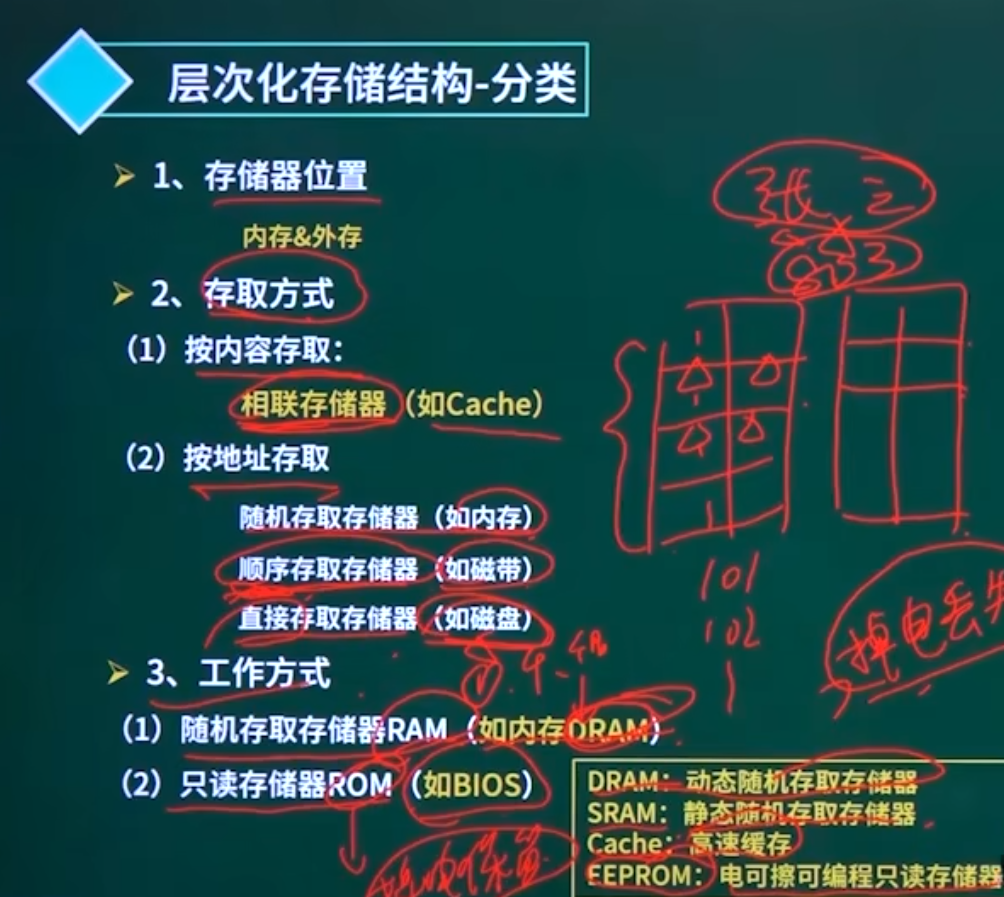 层次化存储结构-分类
1、存储器位置
内存&外存
2、存取方式
（1）按内容存取：
相联存储器（如Cache）
（2）按地址存取
随机存取存储器（如内存）
顺序存取存储器（如磁带）
直接存取存储器（如磁盘）
3、工作方式
（1）随机存取存储器RAM（如内存DRAM）
（2）只读存储器ROM（如BIOS）
DRAM：动态随机存取存储器
SRAM：静态随机存取存储器
Cache：高速缓存
EEPROM：电可擦可编程只读存储器
张三
101
102
掉电丢失